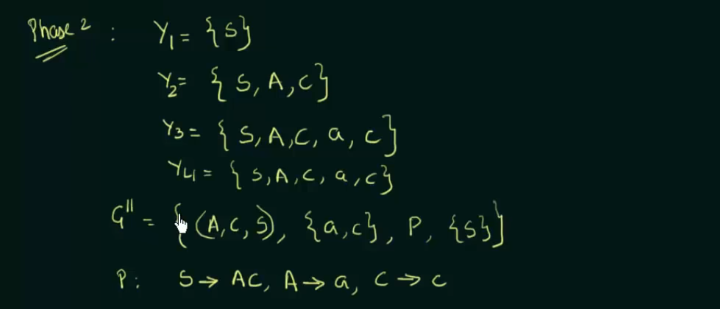 Phase 2 : Y1 = {S}
Y2 = { S, A, C}
Y3 = { S, A, C, a, c}
Y4 = { S, A, C, a, c}
G" = { (A, C, S), {a, c}, P, {S}}
P: S → AC, A → a, C → c